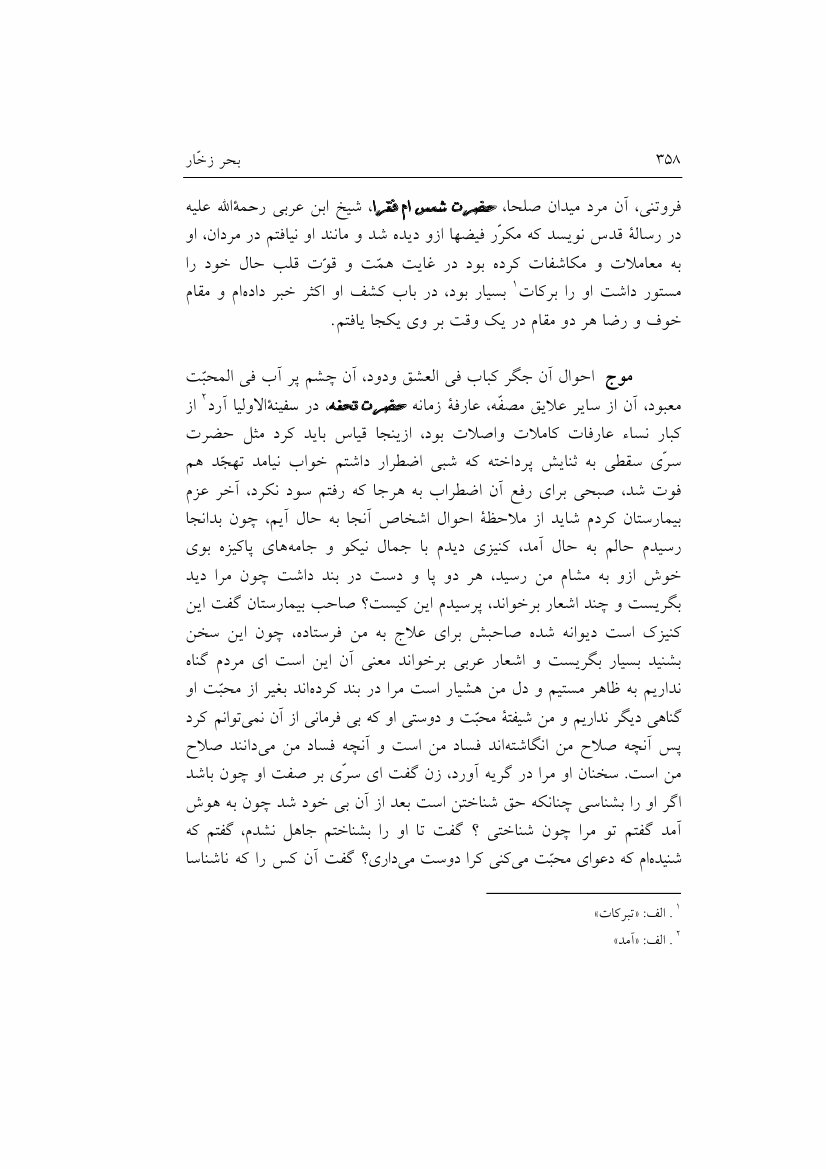 ۳۵۸ بحر زخّار
فروتنی، آن مرد میدان صلحا، حضرت شمس ام فقرا، شیخ ابن عربی رحمةالله علیه
در رسالهٔ قدس نویسد که مکرّر فیضها ازو دیده شد و مانند او نیافتم در مردان، او
به معاملات و مکاشفات کرده بود در غایت همّت و قوّت قلب حال خود را
مستور داشت او را برکات۱ بسیار بود، در باب کشف او اکثر خبر داده‌ام و مقام
خوف و رضا هر دو مقام در یک وقت بر وی یکجا یافتم.
موج احوال آن جگر کباب فی العشق ودود، آن چشم پر آب فی المحبّت
معبود، آن از سایر علایق مصفّه، عارفهٔ زمانه حضرت تحفه، در سفینةالاولیا آرد۲ از
کبار نساء عارفات کاملات واصلات بود، ازینجا قیاس باید کرد مثل حضرت
سرّی سقطی به ثنایش پرداخته که شبی اضطرار داشتم خواب نیامد تهجّد هم
فوت شد، صبحی برای رفع آن اضطراب به هرجا که رفتم سود نکرد، آخر عزم
بیمارستان کردم شاید از ملاحظهٔ احوال اشخاص آنجا به حال آیم، چون بدانجا
رسیدم حالم به حال آمد، کنیزی دیدم با جمال نیکو و جامه‌های پاکیزه بوی
خوش ازو به مشام من رسید، هر دو پا و دست در بند داشت چون مرا دید
بگریست و چند اشعار برخواند، پرسیدم این کیست؟ صاحب بیمارستان گفت این
کنیزک است دیوانه شده صاحبش برای علاج به من فرستاده، چون این سخن
بشنید بسیار بگریست و اشعار عربی برخواند معنی آن این است ای مردم گناه
نداریم به ظاهر مستیم و دل من هشیار است مرا در بند کرده‌اند بغیر از محبّت او
گناهی دیگر نداریم و من شیفتهٔ محبّت و دوستی او که بی فرمانی از آن نمی‌توانم کرد
پس آنچه صلاح من انگاشته‌اند فساد من است و آنچه فساد من می‌دانند صلاح
من است. سخنان او مرا در گریه آورد، زن گفت ای سرّی بر صفت او چون باشد
اگر او را بشناسی چنانکه حق شناختن است بعد از آن بی خود شد چون به هوش
آمد گفتم تو مرا چون شناختی ؟ گفت تا او را بشناختم جاهل نشدم، گفتم که
شنیده‌ام که دعوای محبّت می‌کنی کرا دوست می‌داری؟ گفت آن کس را که ناشناسا
۱ . الف: «تبرکات»
۲ . الف: «آمد»